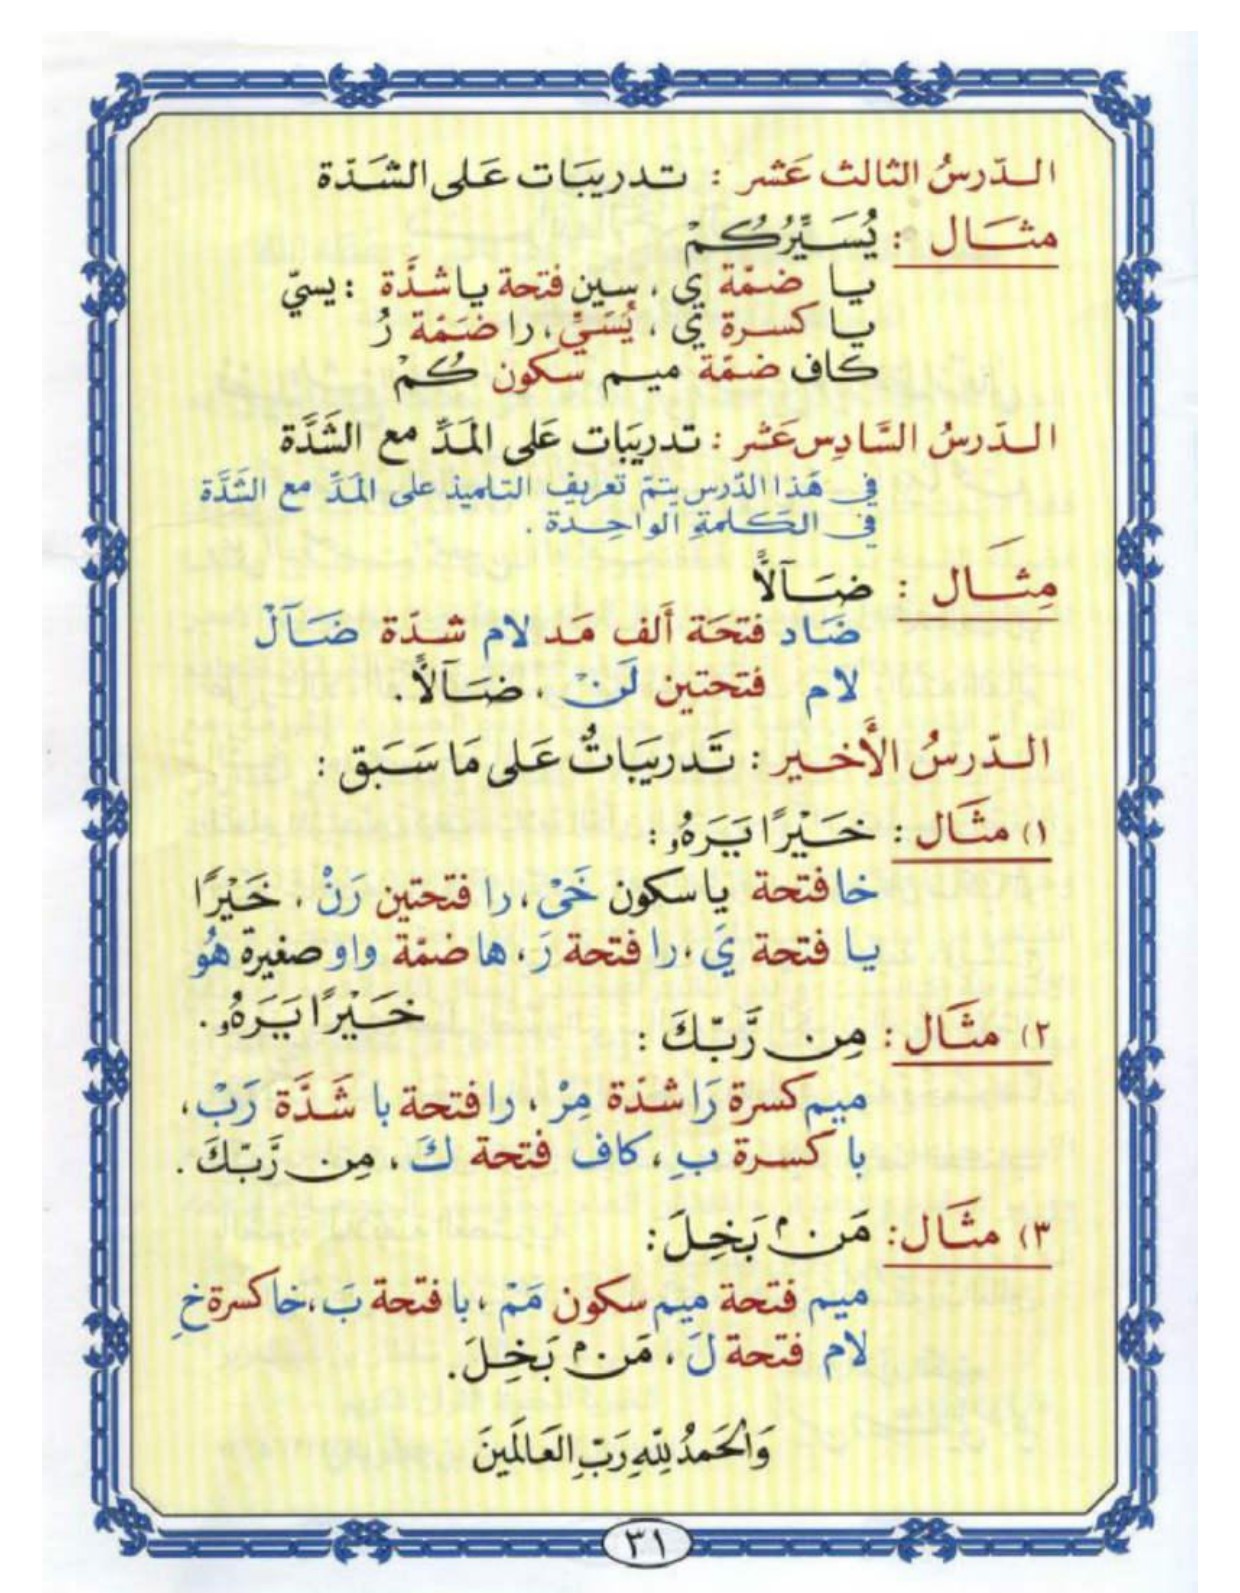 الدّرسُ الثالث عَشر : تدريبَات عَلى الشَدّة
مثَال : يُسَيِّرُكُمْ
يا ضمّة يُ ، سين فتحة يا شدَّة : يسيّ
يا كسرة يِّ ، يُسَيِّ ، را ضَمّة رُ
كاف ضمّة ميم سكون كُمْ
الدّرسُ السَّادِس عَشر : تدريَبات عَلى المَدِّ مع الشَّدَّة
في هَذا الدّرس يتمّ تعريف التلاميذ على المَدِّ مع الشَّدَّة
في الكَلمةِ الواحِدة .
مِثَال : ضَآلاًّ
ضَاد فتحَة أَلف مَد لام شدّة ضَآلْ
لام فتحتين لَنْ ، ضَآلاًّ .
الدّرسُ الأَخير : تَدريَباتٌ عَلى مَا سَبَق :
١) مثَال : خَيْرًا يَرَهُۥ :
خا فتحة يا سكون خَيْ ، را فتحتين رَنْ ، خَيْرًا
يا فتحة يَ ، را فتحة رَ ، ها ضمّة واو صغيرة هُو
خَيْرًا يَرَهُۥ .
٢) مثَال : مِن رَّبِّكَ :
ميم كسرة رَا شدّة مِرْ ، را فتحة با شَدَّة رَبْ ،
با كسرة بِ ، كاف فتحة كَ ، مِن رَّبِّكَ .
٣) مثَال : مَنۢ بَخِلَ :
ميم فتحة ميم سكون مَمْ ، با فتحة بَ ، خا كسرة خِ
لام فتحة لَ ، مَنۢ بَخِلَ .
وَالحَمدُ للّهِ رَبِّ العَالَمينَ
٣١